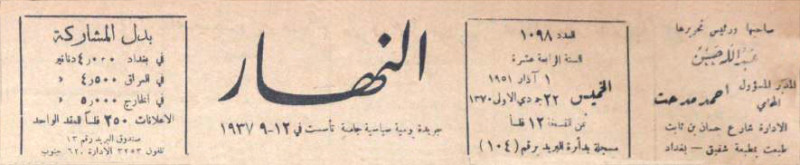 صاحبها ورئيس تحريرها
عبدالله حسن
المدير المسؤول
المحامي
احمد مدحت
الادارة شارع حسان بن ثابت
طبعت بمطبعة شفيق – بغداد
العدد ١٠٩٨
السنة الرابعة عشرة
١ آذار ١٩٥١
الخميس
٢٢ جمادي الاولى ١٣٧٠
ثمن النسخة ١٢ فلساً
مسجلة بدائرة البريد برقم (١٠٤)
النهار
جريدة يومية سياسية جامعة تأسست في ١٢-٩-١٩٣٧
بدل المشاركة
في بغداد ٤,٠٠٠ دنانير
في العراق ٤,٥٠٠ »
في الخارج ٥,٠٠٠ »
الاعلانات ٢٥٠ فلساً للعقد الواحد
صندوق البريد رقم ١٣
تلفون ٣٢٥٣ الادارة ٦٢٠ جنوب